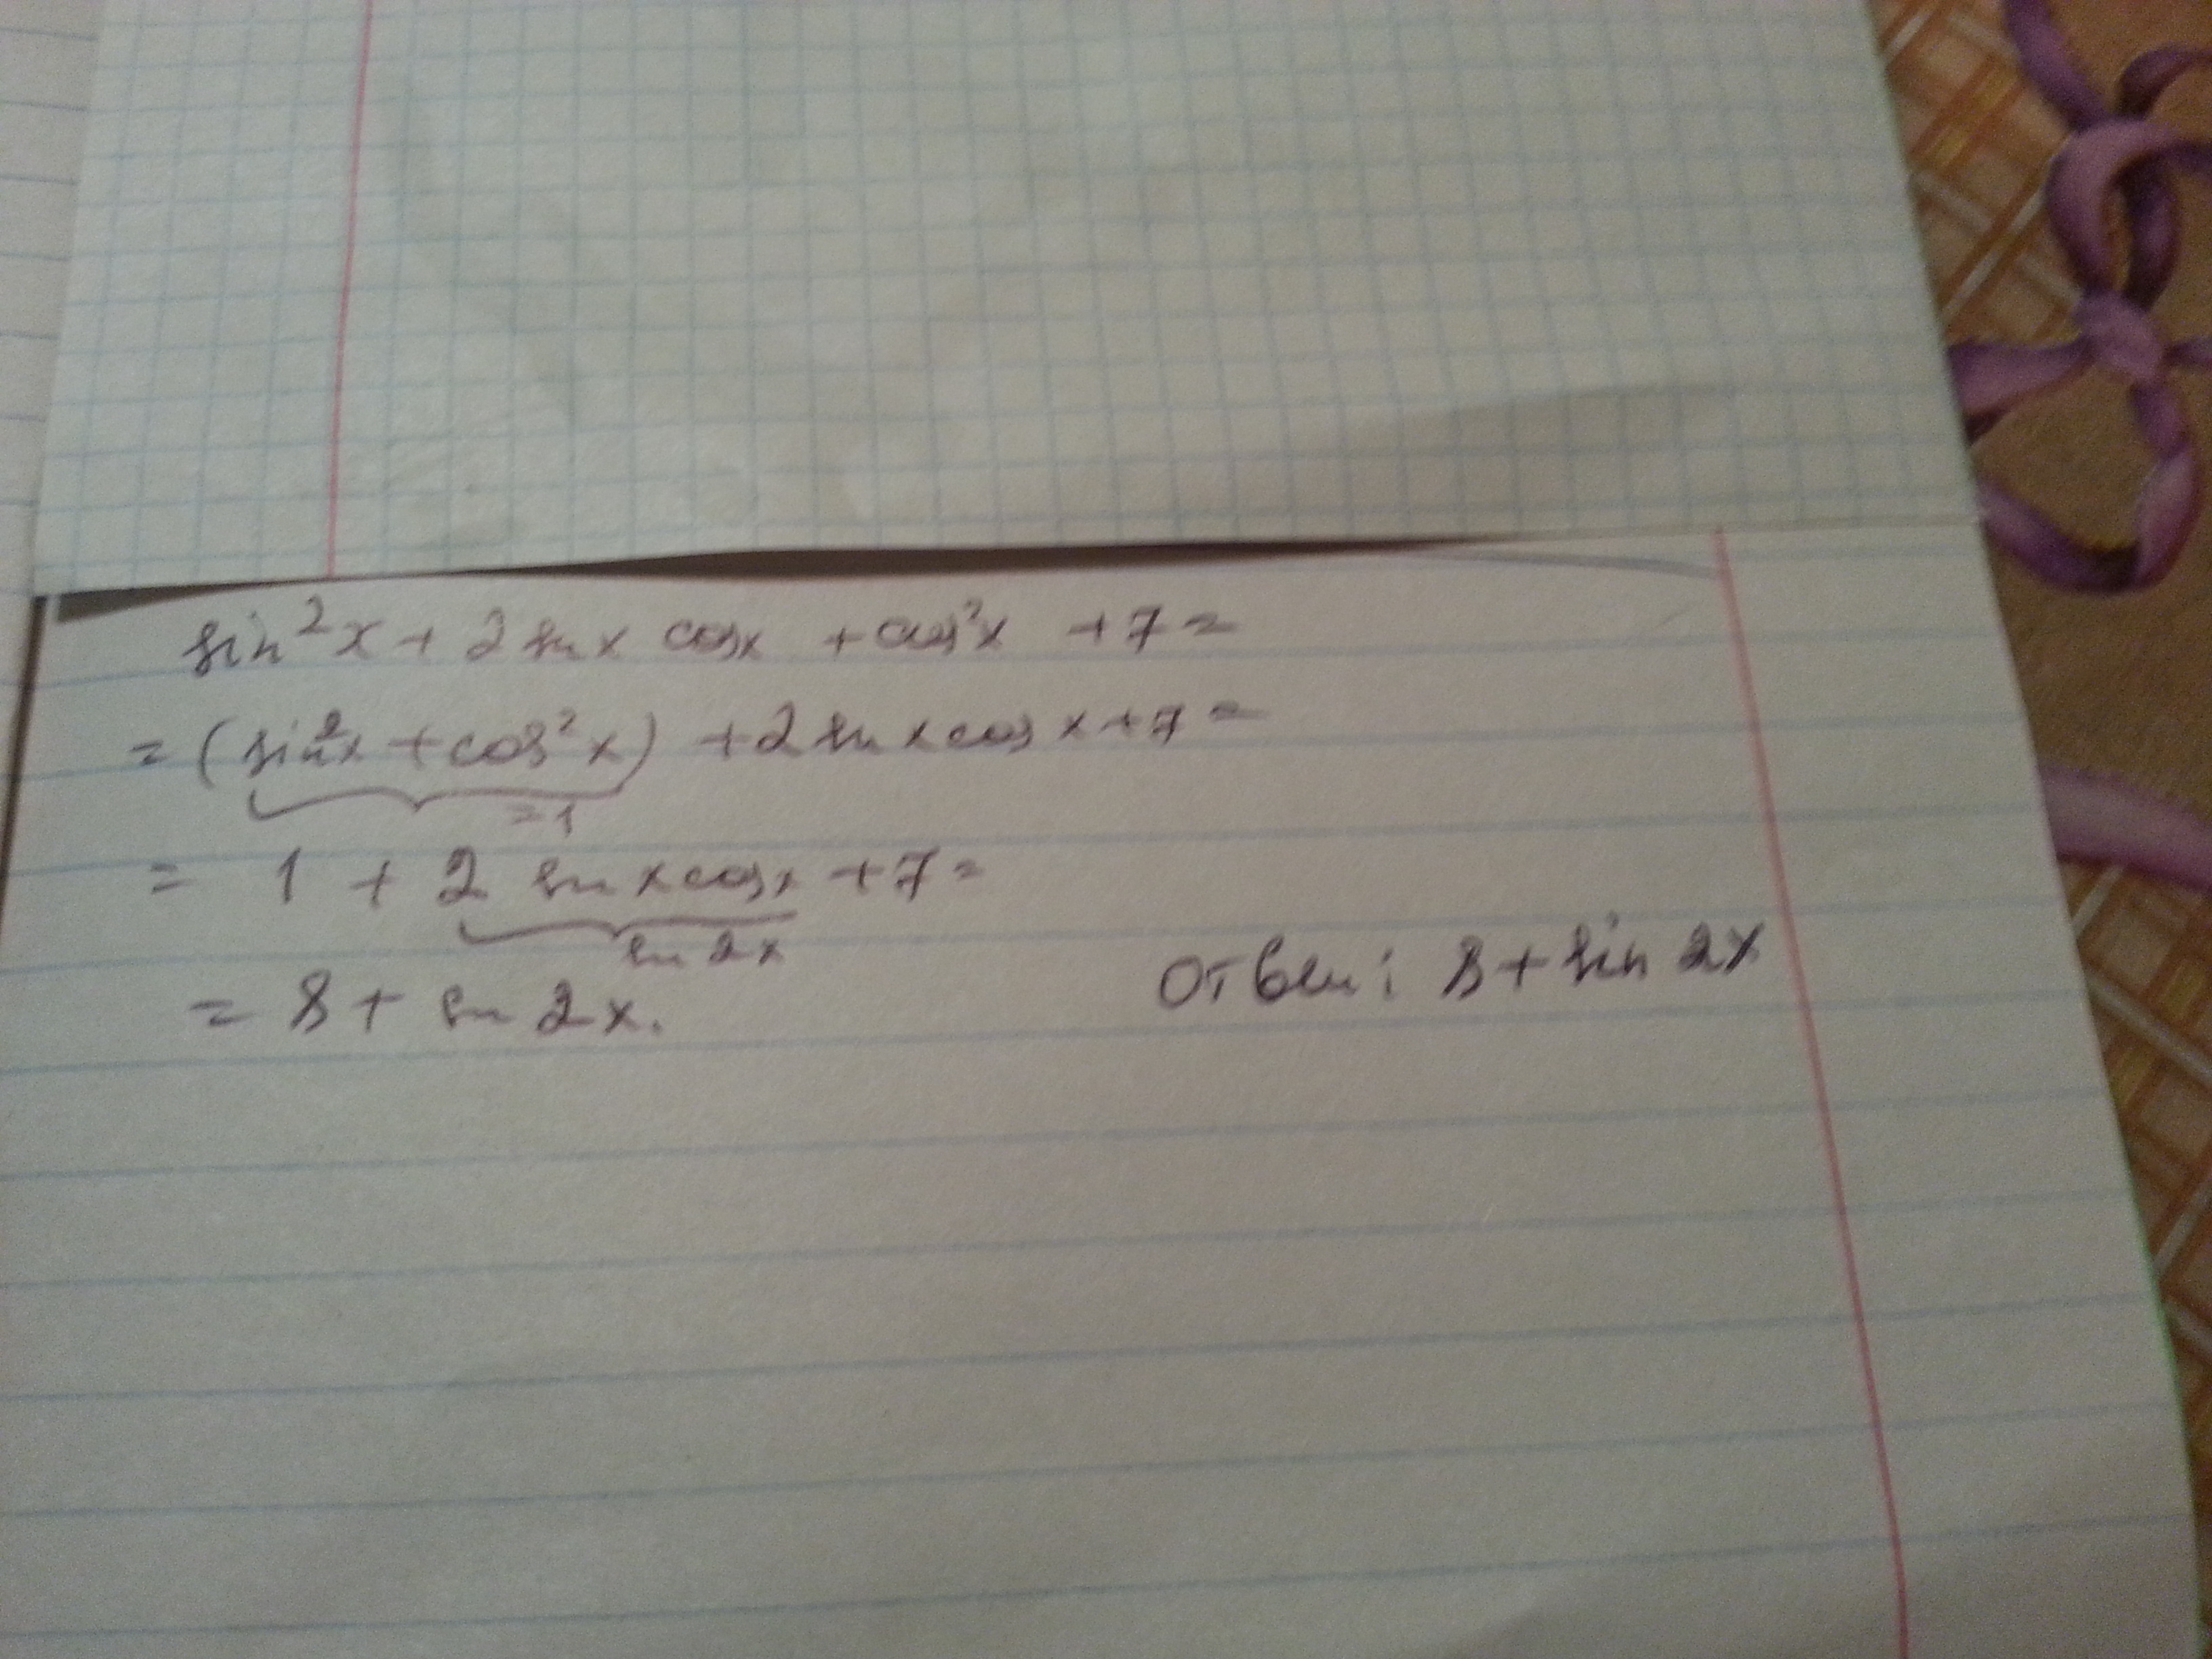 sin²x + 2 sin x cos x + cos²x + 7 =
= (sin²x + cos²x) + 2 sin x cos x + 7 =
= 1
= 1 + 2 sin x cos x + 7 =
sin 2x
= 8 + sin 2x.
Ответ: 8 + sin 2x